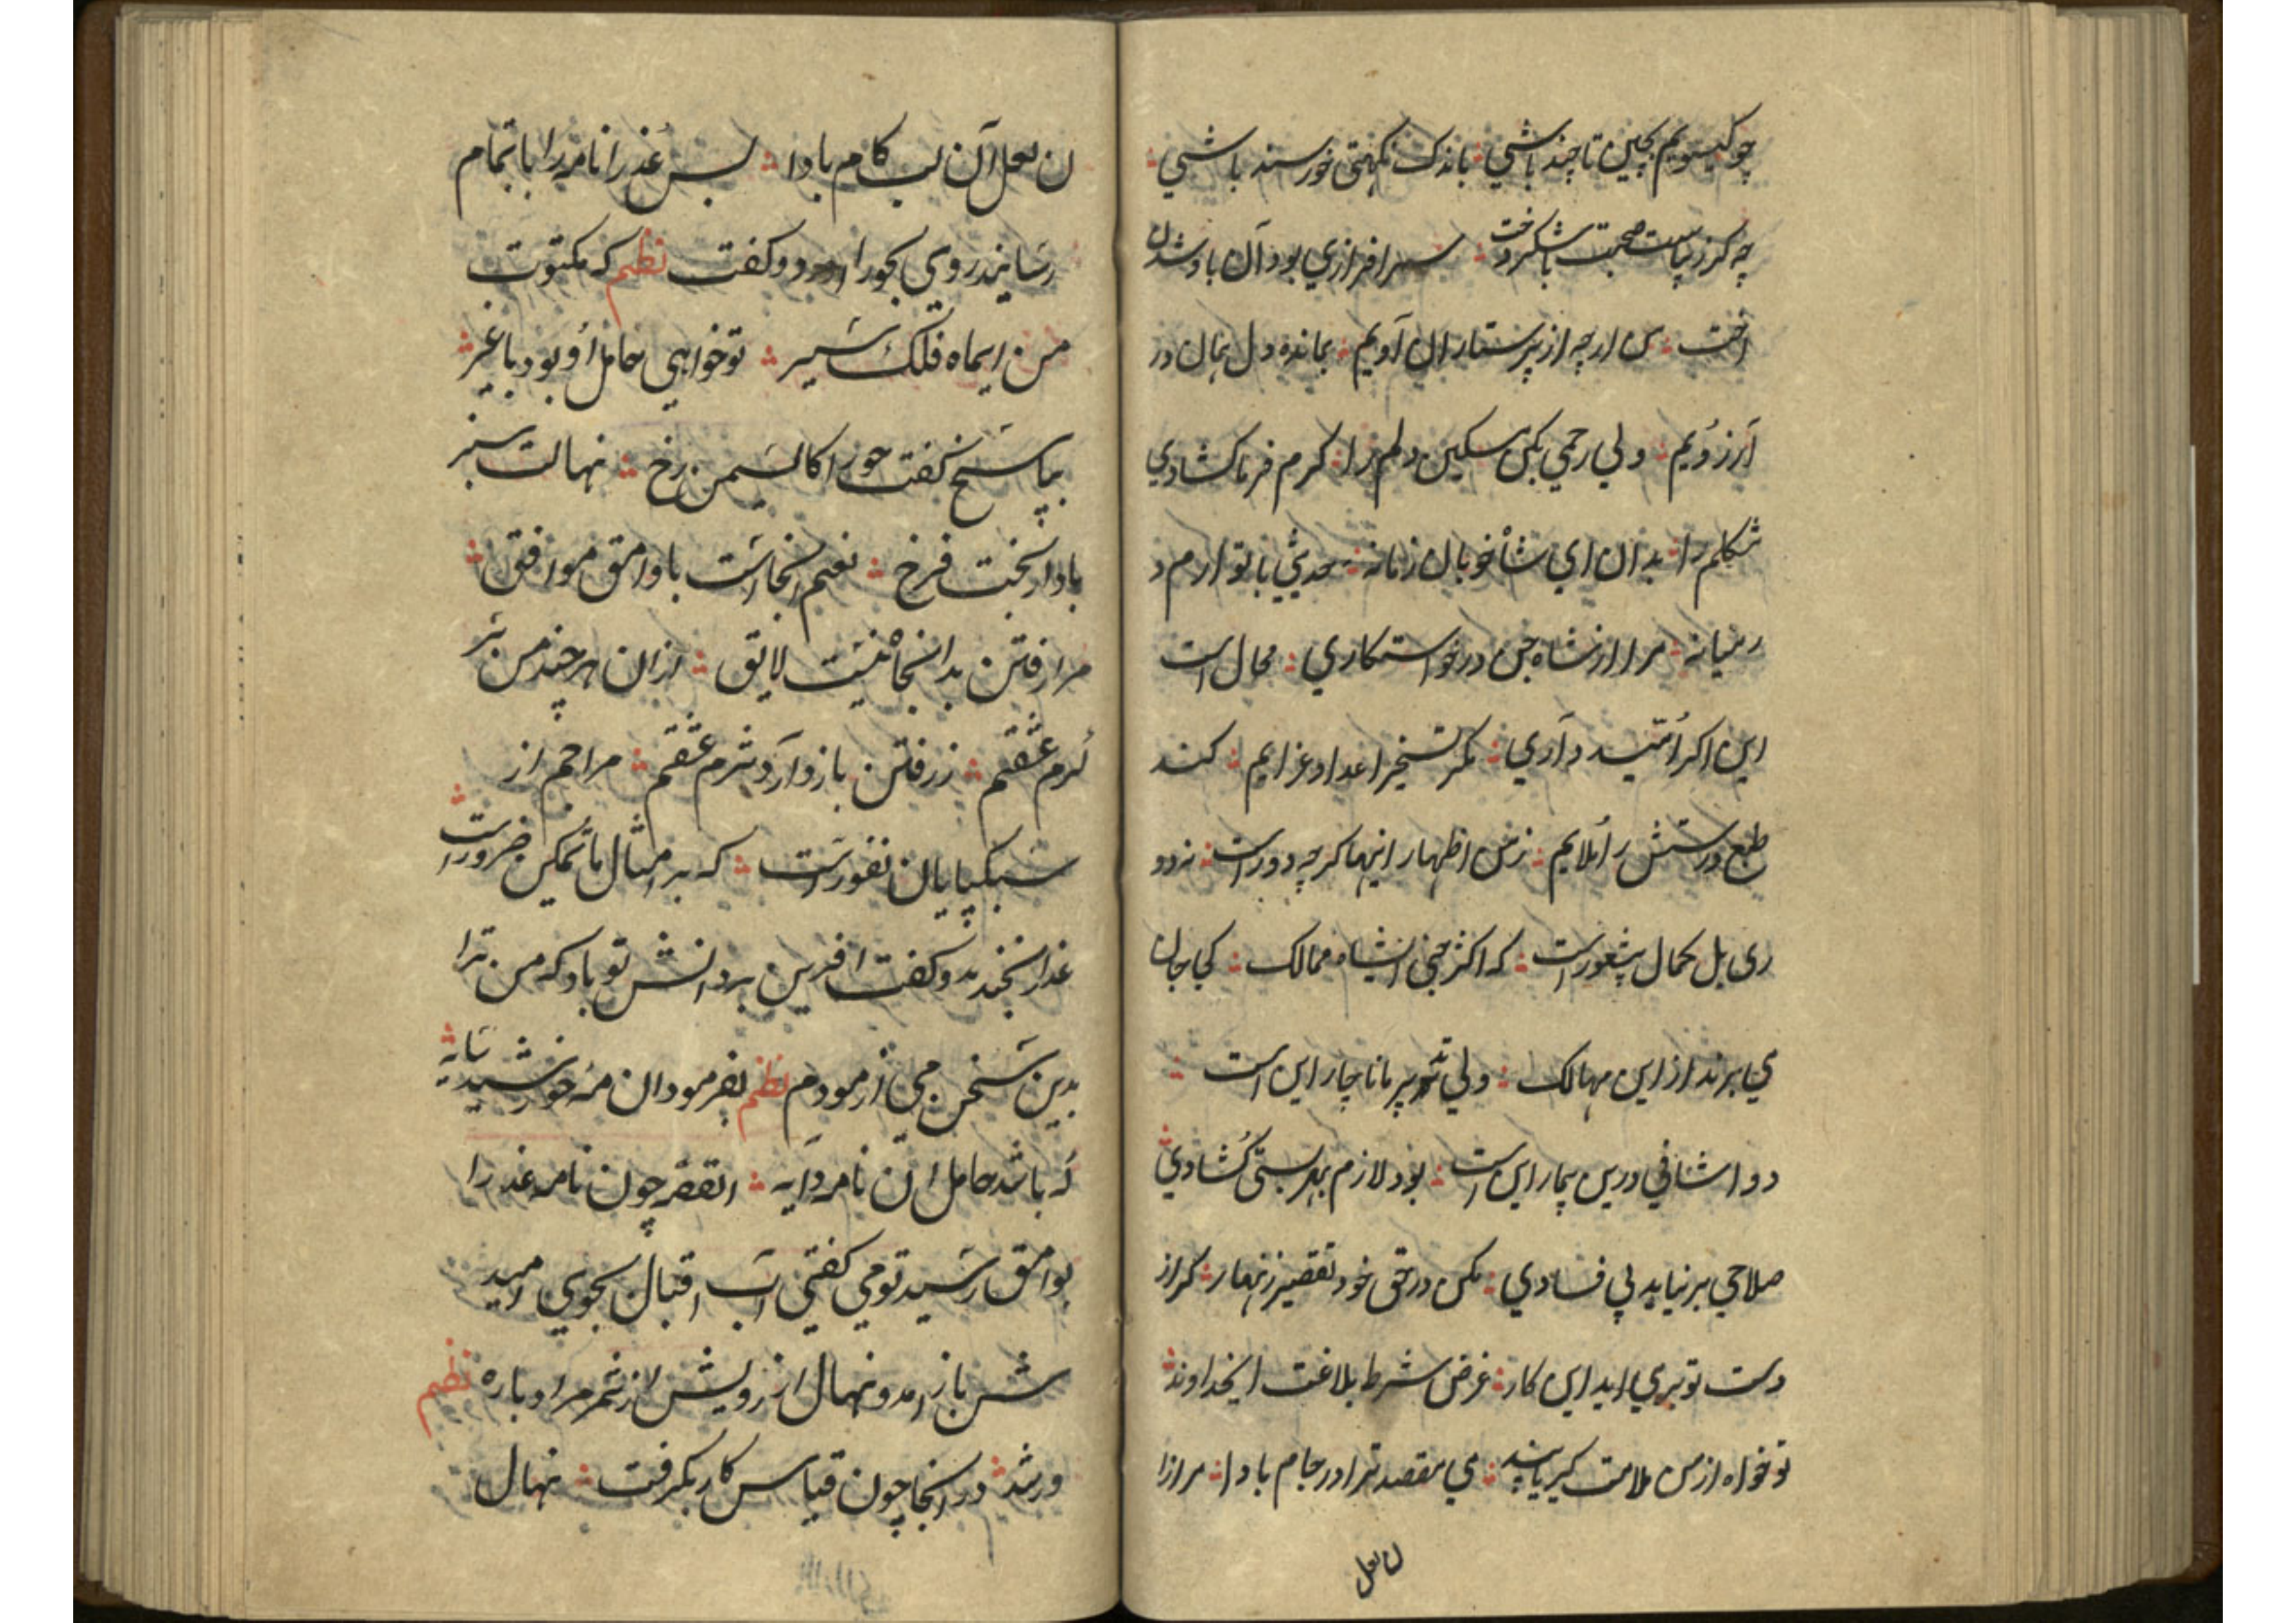 چو کیسویم بچین تا چند باشی باندک نکهتی خورسند باشی
چه کرز نیاست صحبت با شکردخت سرافرازی بود آن با وشدن
اخت من ارچه از پرستاران اویم بمانده دل نهان در
آرزویم ولی رحمی بکن مسکین دلم را کرم فرما کشادی
شکلم را بدان ای شاه خوبان زمانه حدیثی با تو ارم د
رمیانه مرا از شاه جن درخواستکاری محال است
این اکر امید داری مکر تسخیر اعدا و عزایم کند
طبع درستش را ملایم زمن اظهار اینها کرچه دور است نزدو
ری بل کمال بیشعور است که اکثر جنی انشیاه ممالک کجا جان
می برند از این مهالک ولی تدبیر ما ناچار این است
دوا شافی درین بیمار این است بود لازم بهر بستی کشادی
صلاحی بر نیاید بی فسادی مکن در حق خود تقصیر زنهار کر از
دست تو بری اید این کار غرض شرط بلاغت ایخداوند
تو خواه از من ملامت کیر یا پند می مقصد ترا در جام بادا مرازا
ن لعل
ن لعل آن لب کام بادا پس عذرا نامه را باتمام
رسانید روی بحورا اورد و کفت نظم که مکتوبت
من ایماه فلک سیر تو خواهی حامل او بود یا غیر
بپاسخ کفت حورا کای سمن رخ نهالت سبز
بادا ز بخت فرخ نعیم انجاست با وامق موافق
مرا رفتن بدانجا نیست لایق ازان هر چند من بر
کرم عشقم ز رفتن باز دارد شرم عشقم مراحم از
سبکپایان نفورست که بر امثال ما تمکین ضرورست
عذرا بخندید و کفت افرین بر دانش تو باد که من ترا
بدین سخن می ازمودم نظم بفرمود ان مه خورشید سایه
که باشد حامل ان نامه دایه القصه چون نامه عذرا
بوامق رسید تو می کفتی آب اقبال بجوی امید
ش باز امد و نهال ارزویش از ثمر مراد باره نظم
ورشد در انجا چون قیاس کار بکرفت نهال